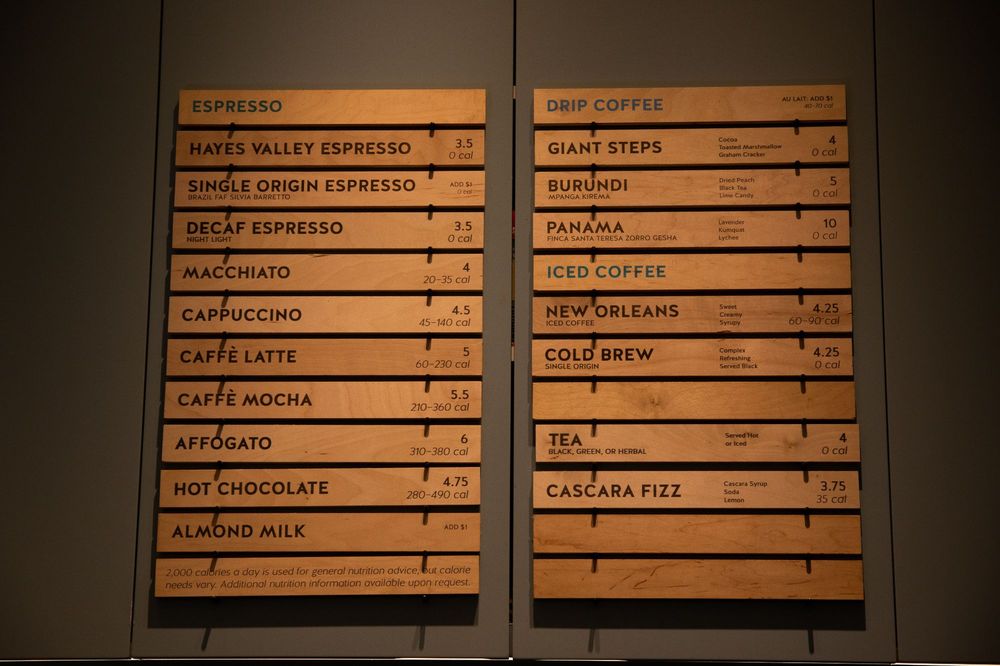 ESPRESSO
HAYES VALLEY ESPRESSO 3.5
0 cal
SINGLE ORIGIN ESPRESSO ADD $1
BRAZIL FAF SILVIA BARRETTO 0 cal
DECAF ESPRESSO 3.5
NIGHT LIGHT 0 cal
MACCHIATO 4
20–35 cal
CAPPUCCINO 4.5
45–140 cal
CAFFÈ LATTE 5
60–230 cal
CAFFÈ MOCHA 5.5
210–360 cal
AFFOGATO 6
310–380 cal
HOT CHOCOLATE 4.75
280–490 cal
ALMOND MILK ADD $1
2,000 calories a day is used for general nutrition advice, but calorie
needs vary. Additional nutrition information available upon request.
DRIP COFFEE AU LAIT: ADD $1
40–70 cal
GIANT STEPS Cocoa 4
Toasted Marshmallow
Graham Cracker 0 cal
BURUNDI Dried Peach 5
MPANGA KIREMA Black Tea
Lime Candy 0 cal
PANAMA Lavender 10
Kumquat
FINCA SANTA TERESA ZORRO GESHA Lychee 0 cal
ICED COFFEE
NEW ORLEANS Sweet 4.25
Creamy
ICED COFFEE Syrupy 60–90 cal
COLD BREW Complex 4.25
Refreshing
SINGLE ORIGIN Served Black 0 cal
TEA Served Hot 4
or Iced
BLACK, GREEN, OR HERBAL 0 cal
CASCARA FIZZ Cascara Syrup 3.75
Soda
Lemon 35 cal